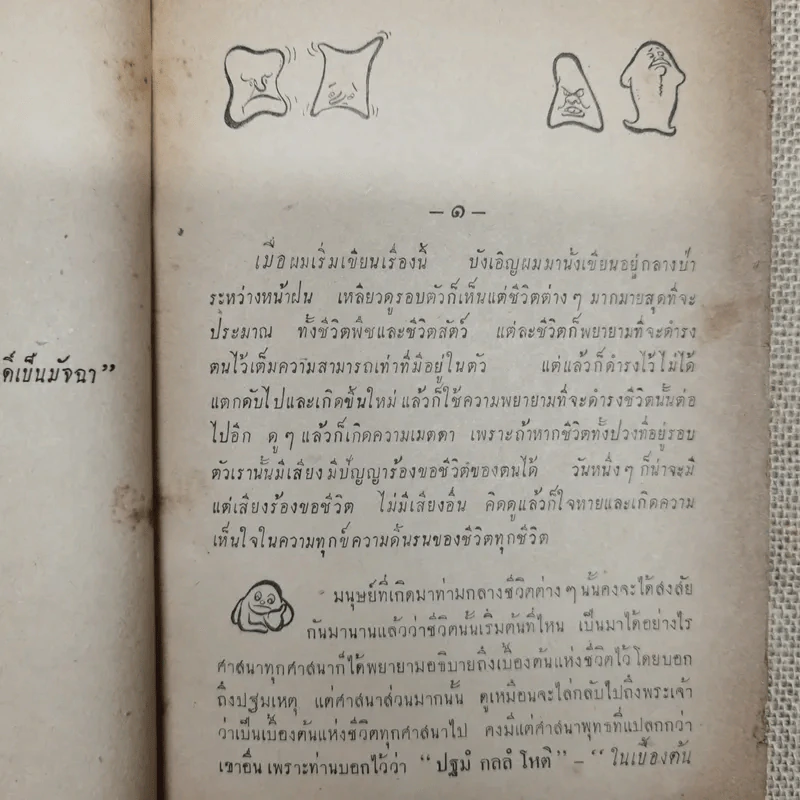 ดิ์เป็นมัจฉา”
– ๑ –
เมื่อผมเริ่มเขียนเรื่องนี้ บังเอิญผมมานั่งเขียนอยู่กลางป่า
ระหว่างหน้าฝน เหลียวดูรอบตัวก็เห็นแต่ชีวิตต่าง ๆ มากมายสุดที่จะ
ประมาณ ทั้งชีวิตพืชและชีวิตสัตว์ แต่ละชีวิตก็พยายามที่จะดำรง
ตนไว้เต็มความสามารถเท่าที่มีอยู่ในตัว แต่แล้วก็ดำรงไว้ไม่ได้
แตกดับไปและเกิดขึ้นใหม่ แล้วก็ใช้ความพยายามที่จะดำรงชีวิตนั้นต่อ
ไปอีก ดู ๆ แล้วก็เกิดความเมตตา เพราะถ้าหากชีวิตทั้งปวงที่อยู่รอบ
ตัวเรานั้นมีเสียง มีปัญญาร้องขอชีวิตของตนได้ วันหนึ่ง ๆ ก็น่าจะมี
แต่เสียงร้องขอชีวิต ไม่มีเสียงอื่น คิดดูแล้วก็ใจหายและเกิดความ
เห็นใจในความทุกข์ความดิ้นรนของชีวิตทุกชีวิต
มนุษย์ที่เกิดมาท่ามกลางชีวิตต่าง ๆ นั้นคงจะได้สงสัย
กันมานานแล้วว่าชีวิตนั้นเริ่มต้นที่ไหน เป็นมาได้อย่างไร
ศาสนาทุกศาสนาก็ได้พยายามอธิบายถึงเบื้องต้นแห่งชีวิตไว้ โดยบอก
ถึงปฐมเหตุ แต่ศาสนาส่วนมากนั้น ดูเหมือนจะไล่กลับไปถึงพระเจ้า
ว่าเป็นเบื้องต้นแห่งชีวิตทุกศาสนาไป คงมีแต่ศาสนาพุทธที่แปลกกว่า
เขาอื่น เพราะท่านบอกไว้ว่า “ปฐมํ กลลํ โหติ” – “ในเบื้องต้น